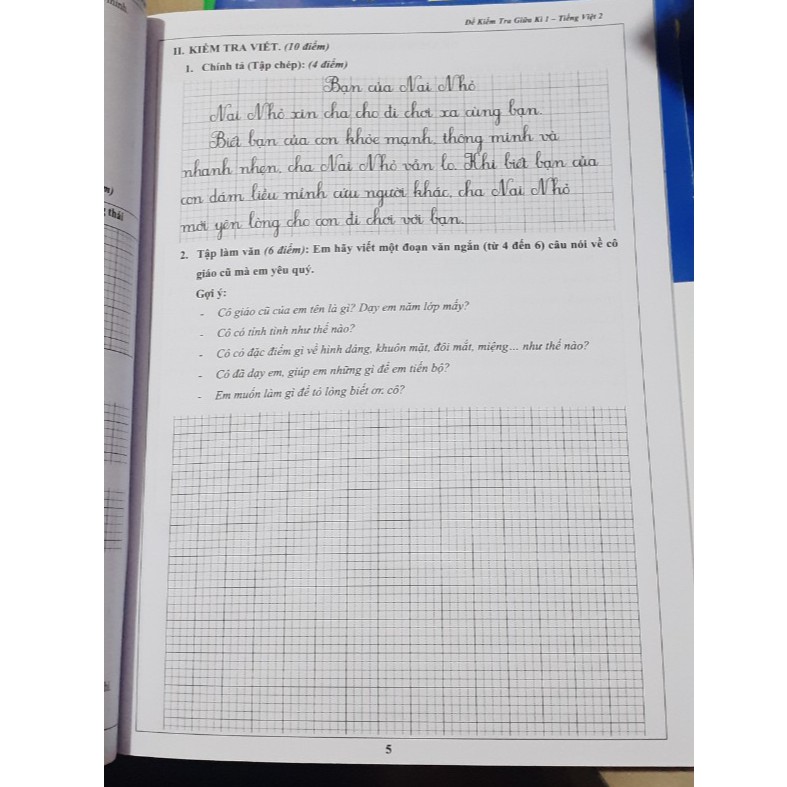 Đề Kiểm Tra Giữa Kì 1 – Tiếng Việt 2
II. KIỂM TRA VIẾT. (10 điểm)
1. Chính tả (Tập chép): (4 điểm)
Bạn của Nai Nhỏ
Nai Nhỏ xin cha cho đi chơi xa cùng bạn.
Biết bạn của con khỏe mạnh, thông minh và
nhanh nhẹn, cha Nai Nhỏ vẫn lo. Khi biết bạn của
con dám liều mình cứu người khác, cha Nai Nhỏ
mới yên lòng cho con đi chơi với bạn.
2. Tập làm văn (6 điểm): Em hãy viết một đoạn văn ngắn (từ 4 đến 6) câu nói về cô
giáo cũ mà em yêu quý.
Gợi ý:
- Cô giáo cũ của em tên là gì? Dạy em năm lớp mấy?
- Cô có tính tình như thế nào?
- Cô có đặc điểm gì về hình dáng, khuôn mặt, đôi mắt, miệng... như thế nào?
- Cô đã dạy em, giúp em những gì để em tiến bộ?
- Em muốn làm gì để tỏ lòng biết ơn cô?
5
thái